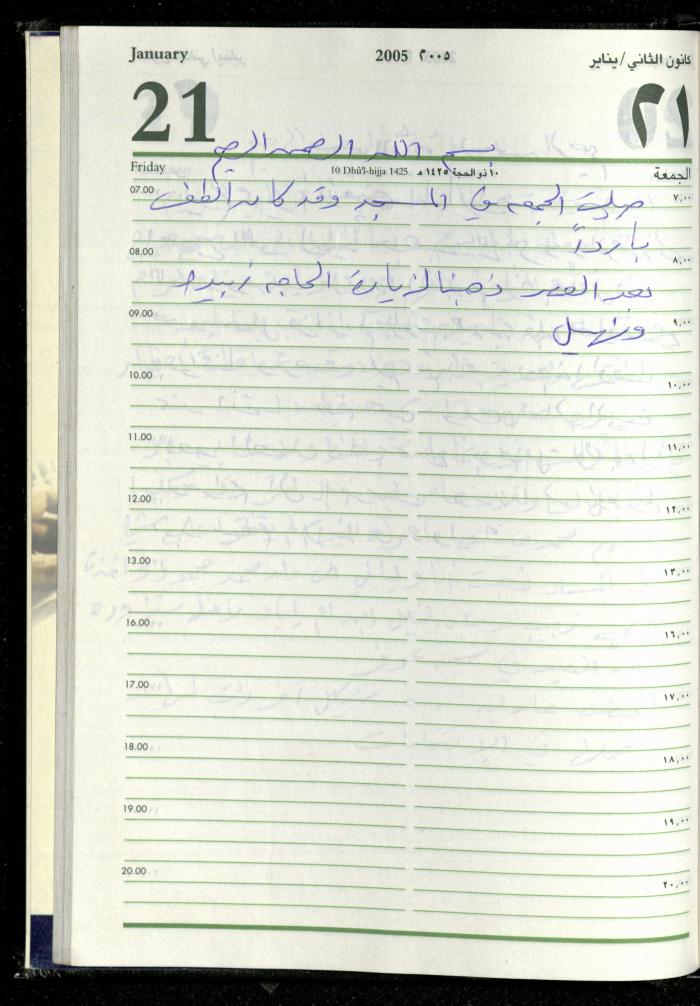 January 2005 ٢٠٠٥ كانون الثاني/يناير
21 ٢١
بسم الله الرحمن الرحيم
Friday 10 Dhû'l-hijja 1425 ١٠ ذو الحجة ١٤٢٥ هـ الجمعة
07.00 ٧,٠٠
صلية الجمعه في المسجد وقد كان الطقس
بارداً
08.00 ٨,٠٠
بعد العصر ذهبنا لزيارة الحاجه زبيده
09.00 ٩,٠٠
ونهيل
10.00 ١٠,٠٠
11.00 ١١,٠٠
12.00 ١٢,٠٠
13.00 ١٣,٠٠
16.00 ١٦,٠٠
17.00 ١٧,٠٠
18.00 ١٨,٠٠
19.00 ١٩,٠٠
20.00 ٢٠,٠٠